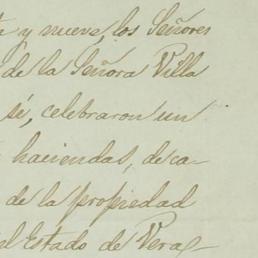 y nueve, los Señores
de la Señora Villa
sí, celebraron un
haciendas, de ca-
de la propiedad
el Estado de Vera-